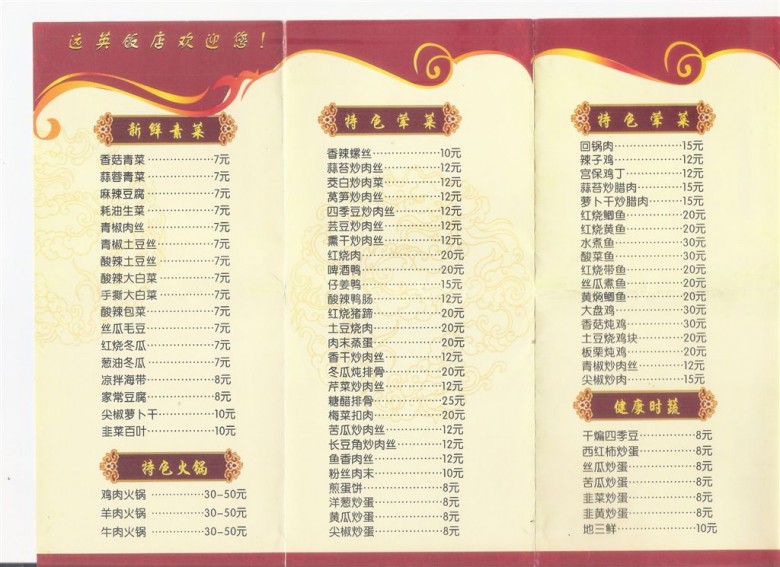 远英饭店欢迎您！
新鲜素菜
香菇青菜………………7元
蒜蓉青菜………………7元
麻辣豆腐………………7元
耗油生菜………………7元
青椒肉丝………………7元
青椒土豆丝……………7元
酸辣土豆丝……………7元
酸辣大白菜……………7元
手撕大白菜……………7元
酸辣包菜………………7元
丝瓜毛豆………………7元
红烧冬瓜………………7元
葱油冬瓜………………7元
凉拌海带………………8元
家常豆腐………………8元
尖椒萝卜干……………10元
韭菜百叶………………10元
特色火锅
鸡肉火锅……………30-50元
羊肉火锅……………30-50元
牛肉火锅……………30-50元
特色荤菜
香辣螺丝………………10元
蒜苔炒肉丝……………12元
茭白炒肉菜……………12元
莴笋炒肉丝……………12元
四季豆炒肉丝…………12元
芸豆炒肉丝……………12元
熏干炒肉丝……………12元
红烧肉…………………20元
啤酒鸭…………………20元
仔姜鸭…………………15元
酸辣鸭肠………………12元
红烧猪蹄………………20元
土豆烧肉………………20元
肉末蒸蛋………………20元
香干炒肉丝……………12元
冬瓜炖排骨……………20元
芹菜炒肉丝……………12元
糖醋排骨………………25元
梅菜扣肉………………20元
苦瓜炒肉丝……………12元
长豆角炒肉丝…………12元
鱼香肉丝………………12元
粉丝肉末………………10元
煎蛋饼…………………8元
洋葱炒蛋………………8元
黄瓜炒蛋………………8元
尖椒炒蛋………………8元
特色荤菜
回锅肉…………………15元
辣子鸡…………………12元
宫保鸡丁………………12元
蒜苔炒腊肉……………15元
萝卜干炒腊肉…………15元
红烧鲫鱼………………20元
红烧黄鱼………………20元
水煮鱼…………………30元
酸菜鱼…………………30元
红烧带鱼………………20元
丝瓜煮鱼………………20元
黄焖鲫鱼………………20元
大盘鸡…………………30元
香菇炖鸡………………30元
土豆烧鸡块……………20元
板栗炖鸡………………20元
青椒炒肉丝……………12元
尖椒炒肉………………15元
健康时蔬
干煸四季豆……………8元
西红柿炒蛋……………8元
丝瓜炒蛋………………8元
苦瓜炒蛋………………8元
韭菜炒蛋………………8元
韭黄炒蛋………………8元
地三鲜…………………10元